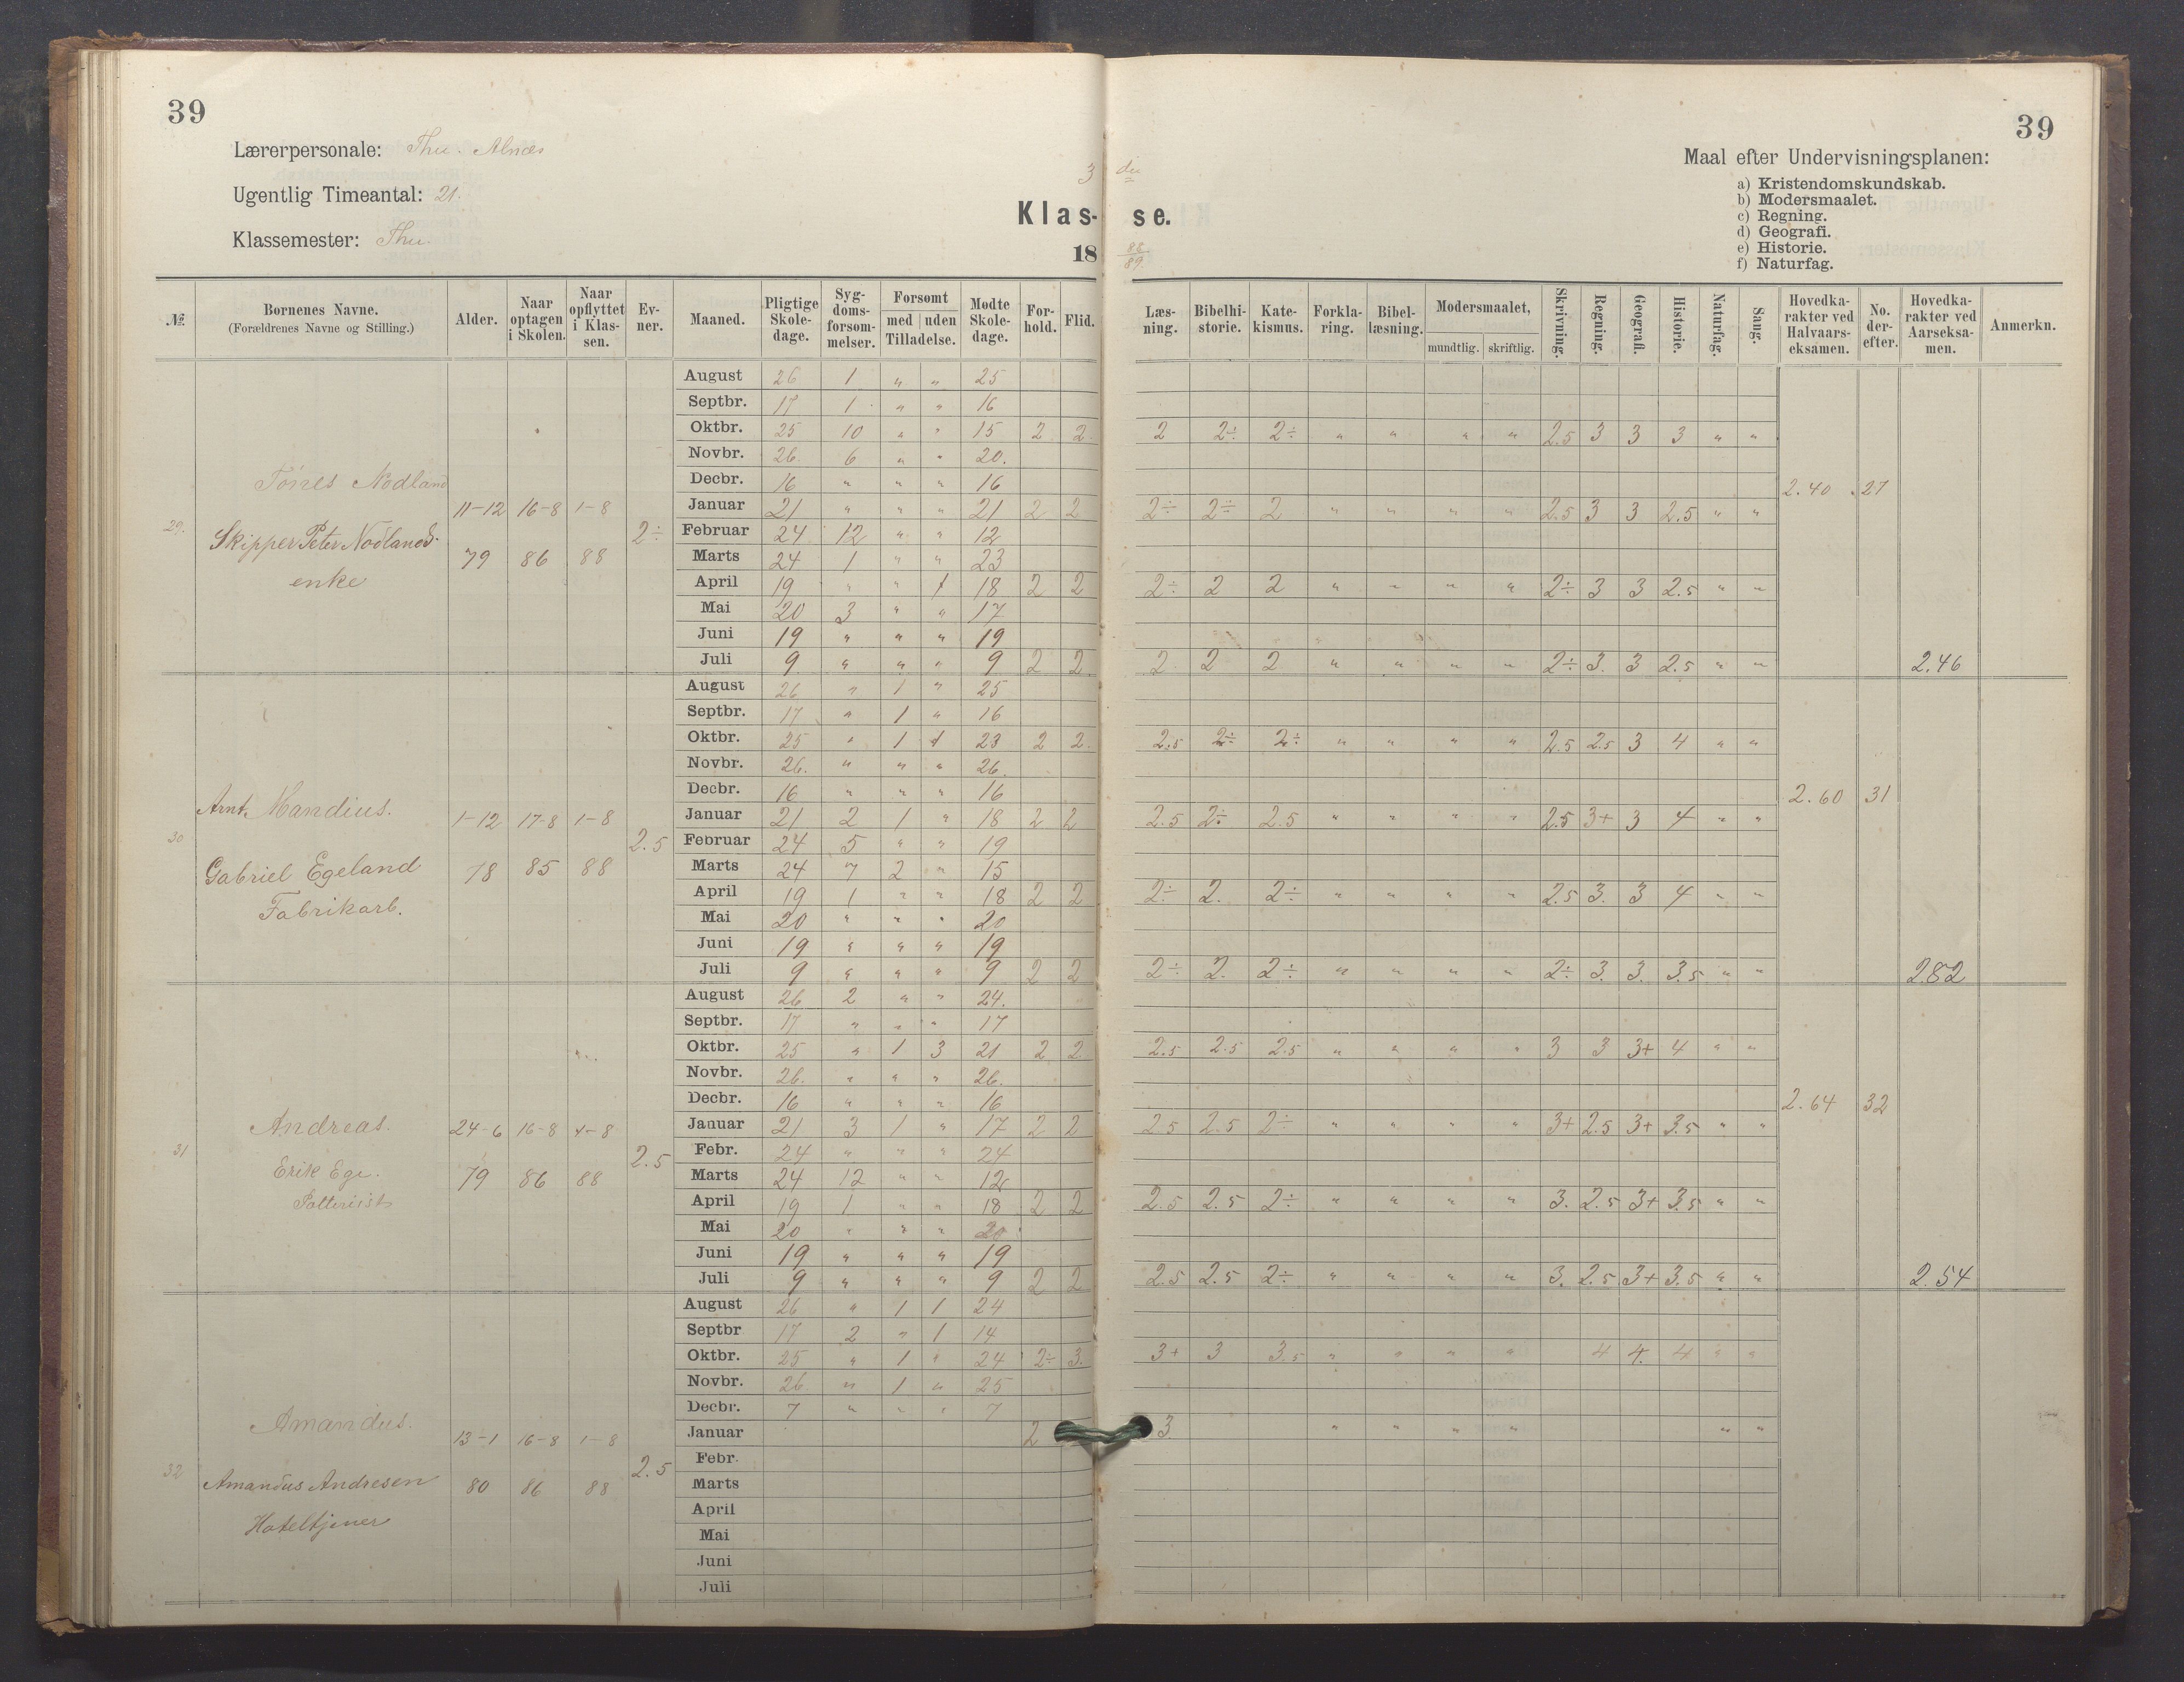 39
39
Lærerpersonale: Thu. Alnæs
Ugentlig Timeantal: 21.
Klassemester: Thu.
3 die
Klas- se.
18 88/89.
Maal efter Undervisningsplanen:
a) Kristendomskundskab.
b) Modersmaalet.
c) Regning.
d) Geografi.
e) Historie.
f) Naturfag.
№ Børnenes Navne. (Forældrenes Navne og Stilling.) Alder. Naar optagen i Skolen. Naar opflyttet i Klassen. Evner. Maaned. Pligtige Skoledage. Sygdomsforsømmelser. Forsømt med | uden Tilladelse. Mødte Skoledage. Forhold. Flid. Læsning. Bibelhistorie. Katekismus. Forklaring. Bibellæsning. Modersmaalet, mundtlig. skriftlig. Skrivning. Regning. Geografi. Historie. Naturfag. Sang. Hovedkarakter ved Halvaarseksamen. No. derefter. Hovedkarakter ved Aarseksamen. Anmerkn.
29. Tørres Nødland
Skipper Peter Nødlands enke
11-12 79 16-8 86 1-8 88 2÷
August 26 1 " " 25
Septbr. 17 1 " " 16
Oktbr. 25 10 " " 15 2 2 2 2÷ 2÷ " " " " 2.5 3 3 3 " "
Novbr. 26. 6 " " 20.
Decbr. 16 " " " 16 2.40 27
Januar 21 " " " 21 2 2 2÷ 2÷ 2 " " " " 2.5 3 3 2.5 " "
Februar 24 12 " " 12
Marts 24 1 " " 23
April 19 " " 1 18 2 2 2÷ 2 2 " " " " 2÷ 3 3 2.5 " "
Mai 20 3 " " 17
Juni 19 " " " 19
Juli 9 " " " 9 2 2 2 2 2 " " " " 2÷ 3. 3 2.5 " " 2.46
30 Arnt. Mandius.
Gabriel Egeland
Fabrikarb.
1-12 78 17-8 85 1-8 88 2.5
August 26 " 1 " 25
Septbr. 17 " 1 " 16
Oktbr. 25 " 1 1 23 2 2. 2.5 2÷ 2÷ " " " " 2.5 2.5 3 4 " "
Novbr. 26. " " " 26.
Decbr. 16 " " " 16 2.60 31
Januar 21 2 1 " 18 2 2 2.5 2÷ 2.5 " " " " 2.5 3+ 3 4 " "
Februar 24 5 " " 19
Marts 24 7 2 " 15
April 19 1 " " 18 2 2 2÷ 2. 2÷ " " " " 2.5 3. 3 4 " "
Mai 20 " " " 20
Juni 19 " " " 19
Juli 9 " " " 9 2 2 2÷ 2. 2÷ " " " " 2÷ 3. 3. 3.5 " " 2.82
31 Andreas.
Erik Ege.
24-6 79 16-8 86 1-8 88 2.5
August 26 2 " " 24.
Septbr. 17 " " " 17
Oktbr. 25 " 1 3 21 2 2 2.5 2.5 2.5 " " " " 3 3 3+ 4 " "
Novbr. 26. " " " 26.
Decbr. 16 " " " 16 2.64 32
Januar 21 3 1 " 17 2 2 2.5 2.5 2÷ " " " " 3+ 2.5 3+ 3.5 " "
Febr. 24 " " " 24
Marts 24 12 " " 12
April 19 1 " " 18 2 2 2.5 2.5 2÷ " " " " 3. 2.5 3+ 3.5 " "
Mai 20 " " " 20
Juni 19 " " " 19
Juli 9 " " " 9 2 2 2.5 2.5 2÷ " " " " 3. 2.5 3+ 3.5 " " 2.54
32 Amandus.
Amandus Andresen
Hoteltjener
13-1 80 16-8 86 1-8 88 2.5
August 26 " 1 1 24
Septbr 17 2 " 1 14
Oktbr. 25 " 1 " 24 2÷ 3. 3+ 3 3.5 " " " " 4 4. 4 " "
Novbr. 26 " 1 " 25
Decbr. 7 " " " 7
Januar 2 3 " " " " " "
Febr.
Marts
April
Mai
Juni
Juli